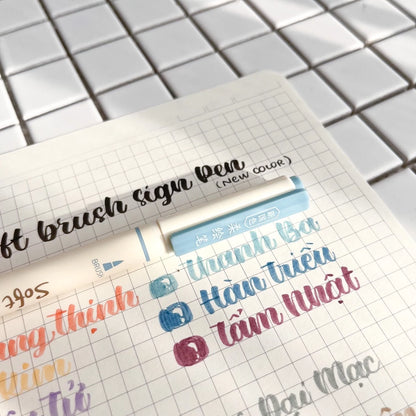 ft brush sign pen
(NEW COLOR)
柔绘笔
Brush
Soft
Thanh Ba
ng thịnh
Hàn Triều
Nhật
tử
Đại Mạc